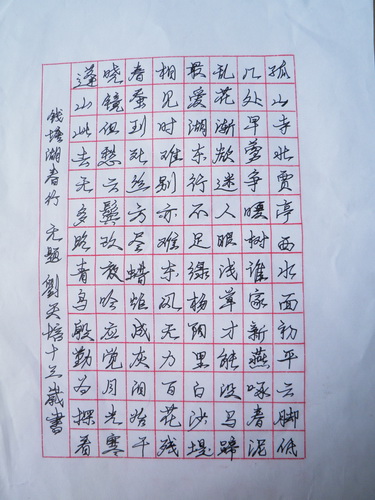 孤山寺北贾亭西水面初平云脚低
几处早莺争暖树谁家新燕啄春泥
乱花渐欲迷人眼浅草才能没马蹄
最爱湖东行不足绿杨阴里白沙堤
相见时难别亦难东风无力百花残
春蚕到死丝方尽蜡炬成灰泪始干
晓镜但愁云鬓改夜吟应觉月光寒
蓬山此去无多路青鸟殷勤为探看
钱塘湖春行 无题 劉奕培十三歲書